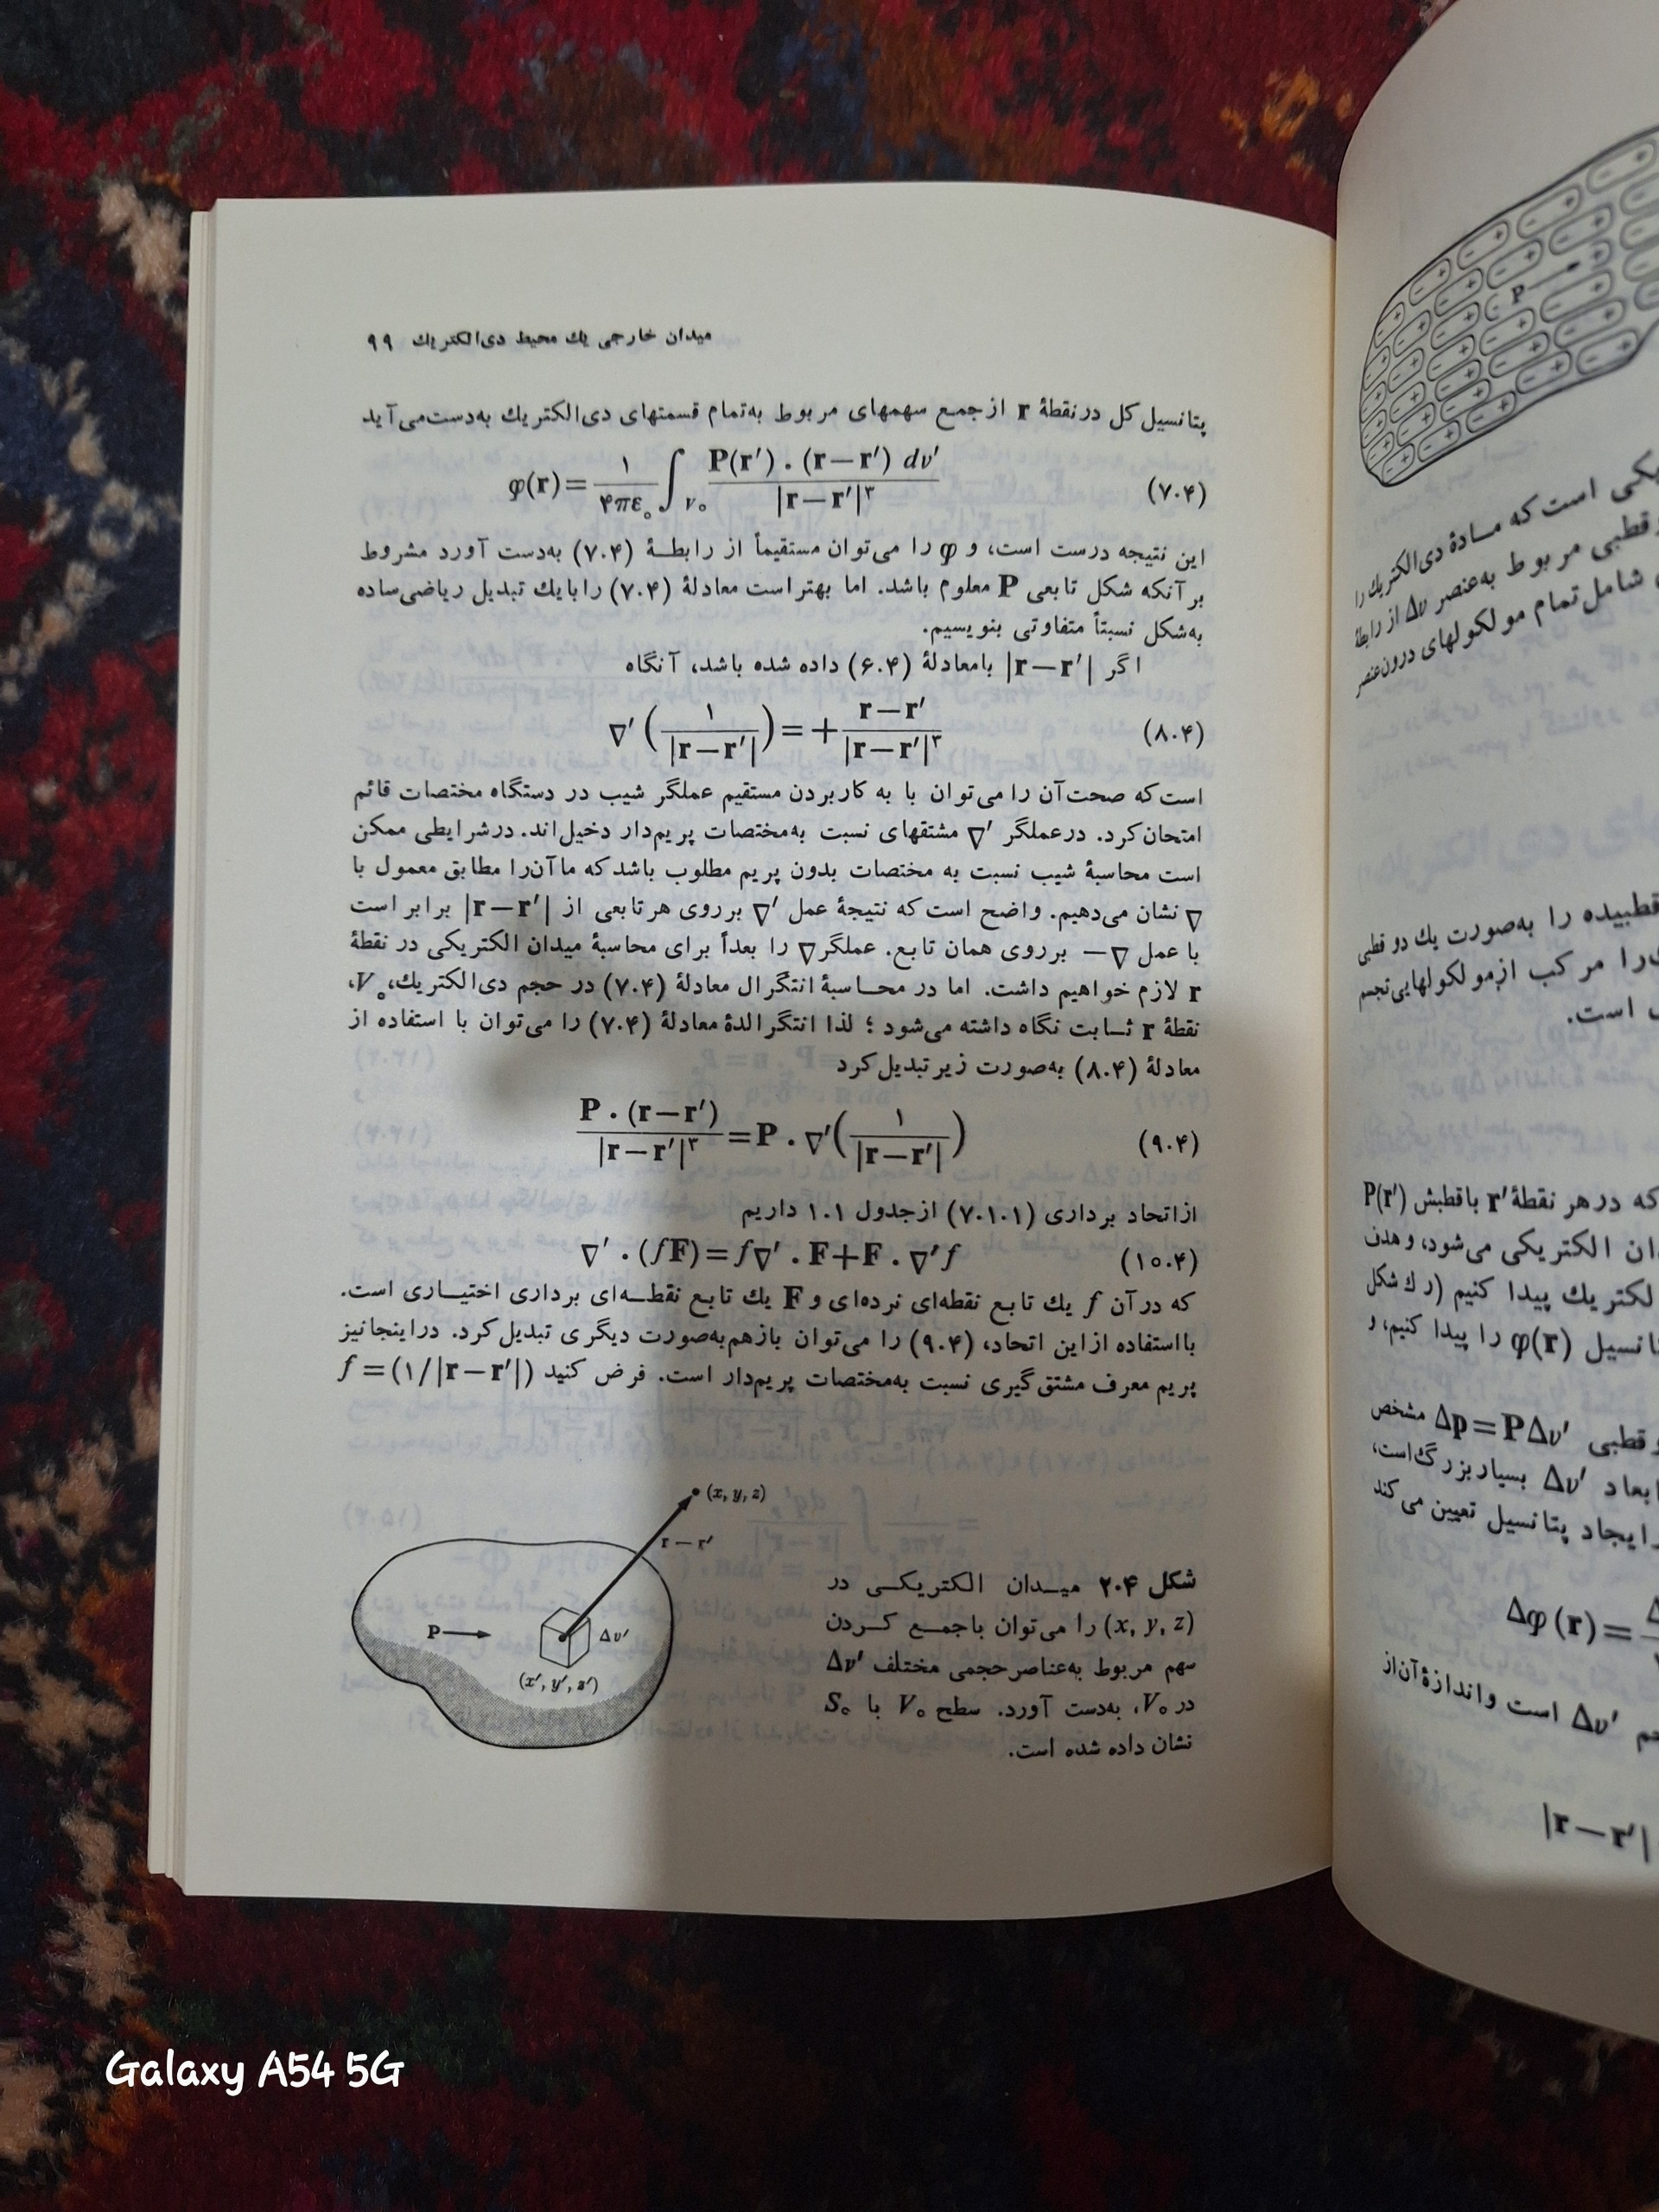 میدان خارجی یك محیط دی‌الکتریك ۹۹
پتانسیل کل در نقطهٔ r از جمع سهمهای مربوط به‌تمام قسمتهای دی‌الکتریك به‌دست‌می‌آید
φ(r)=۱/۴πε₀ ∫V₀ P(r′).(r−r′) dv′/|r−r′|³ (۷.۴)
این نتیجه درست است، و φ را می‌توان مستقیماً از رابطـهٔ (۷.۴) به‌دست آورد مشروط
بر آنکه شکل تابعی P معلوم باشد. اما بهتر است معادلهٔ (۷.۴) را با یك تبدیل ریاضی ساده
به‌شکل نسبتاً متفاوتی بنویسیم.
اگر |r−r′| با معادلهٔ (۶.۴) داده شده باشد، آنگاه
∇′(۱/|r−r′|)=+ r−r′/|r−r′|³ (۸.۴)
است که صحت آن را می‌توان با به کار بردن مستقیم عملگر شیب در دستگاه مختصات قائم
امتحان کرد. در عملگر ∇′ مشتقهای نسبت به‌مختصات پریم‌دار دخیل‌اند. در شرایطی ممکن
است محاسبهٔ شیب نسبت به مختصات بدون پریم مطلوب باشد که ما آن را مطابق معمول با
∇ نشان می‌دهیم. واضح است که نتیجهٔ عمل ∇′ بر روی هر تابعی از |r−r′| برابر است
با عمل ∇− بر روی همان تابع. عملگر ∇ را بعداً برای محاسبهٔ میدان الکتریکی در نقطهٔ
r لازم خواهیم داشت. اما در محـاسبهٔ انتگرال معادلهٔ (۷.۴) در حجم دی‌الکتریك، V₀،
نقطهٔ r ثـابت نگاه داشته می‌شود؛ لذا انتگرالدهٔ معادلهٔ (۷.۴) را می‌توان با استفاده از
معادلهٔ (۸.۴) به‌صورت زیر تبدیل کرد
P.(r−r′)/|r−r′|³=P.∇′(۱/|r−r′|) (۹.۴)
از اتحاد برداری (۷.۱.۱) از جدول ۱.۱ داریم
∇′.(fF)=f∇′.F+F.∇′f (۱۰.۴)
که در آن f یك تابع نقطه‌ای نرده‌ای و F یك تابع نقطـه‌ای برداری اختیـاری است.
با استفاده از این اتحاد، (۹.۴) را می‌توان باز هم به‌صورت دیگری تبدیل کرد. در اینجا نیز
پریم معرف مشتق‌گیری نسبت به‌مختصات پریم‌دار است. فرض کنید f=(۱/|r−r′|)
(x, y, z)
r−r′
P
Δv′
(x′, y′, z′)
شکل ۲.۴ میـدان الکتریکـی در
(x, y, z) را می‌توان با جمـع کـردن
سهم مربوط به‌عناصر حجمی مختلف Δv′
در V₀، به‌دست آورد. سطح V₀ با S₀
نشان داده شده است.
P
یکی است که مـادهٔ دی‌الکتریك را
قطبی مربوط به‌عنصر Δv از رابطهٔ
شامل تمام مولکولهای درون عنصر
قطبیده را به‌صورت یك دو قطبی
را مرکب از مولکولهایی تجسم
است.
که در هر نقطهٔ r′ با قطبش P(r′)
الکتریکی می‌شود، و هدف
پیدا کنیم (رك شکل
φ(r) را پیدا کنیم، و
قطبی Δp=PΔv′ مشخص
ابعاد Δv′ بسیار بزرگ است،
ایجاد پتانسیل تعیین می‌کند
Δφ(r)=
Δv′ است و اندازهٔ آن از
|r−r′|
Galaxy A54 5G